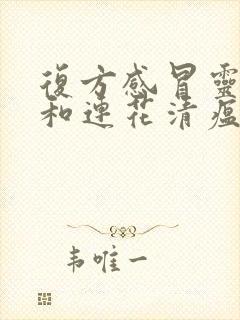 復方感冒靈
和連花清瘟
韦唯一